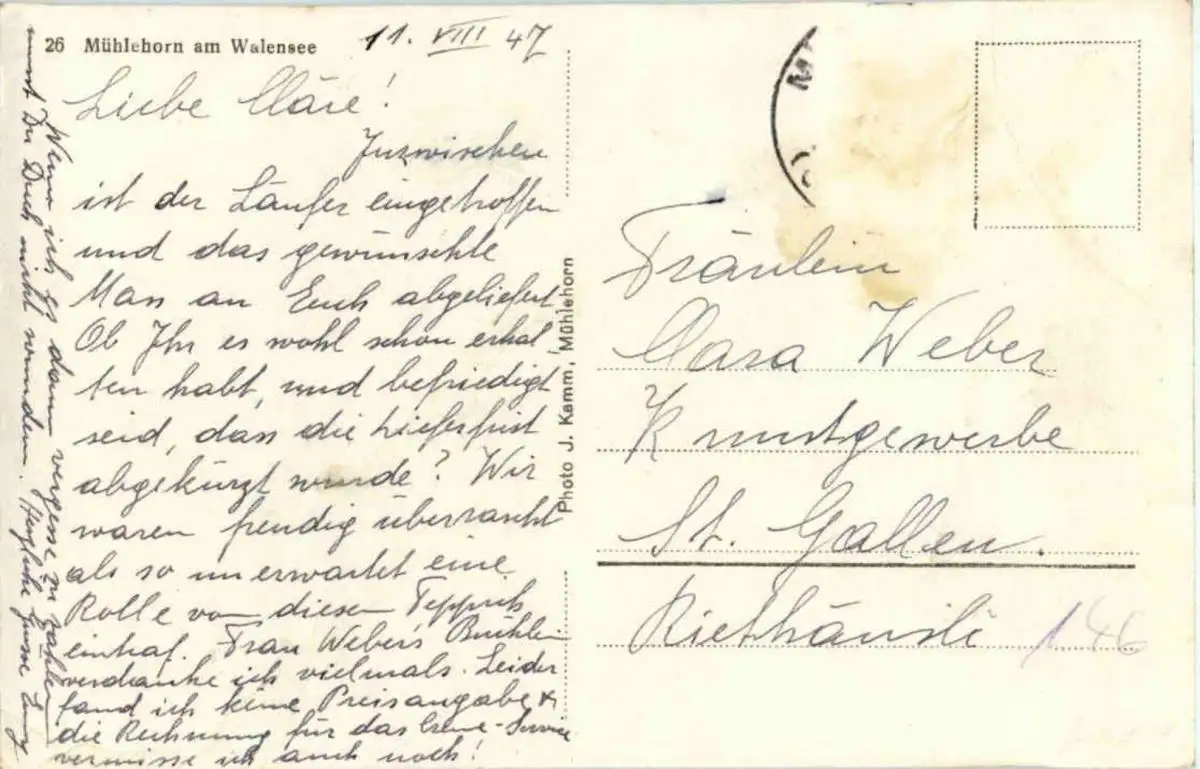 26 Mühlehorn am Walensee
11. VIII 47
Liebe Cläre!
Inzwischen
ist der Läufer eingetroffen
und das gewünschte
Mass an Euch abgeliefert.
Ob Ihr es wohl schon erhal-
ten habt, und befriedigt
seid, dass die Lieferfrist
abgekürzt wurde? Wir
waren freudig überrascht
als so unerwartet eine
Rolle von diesem Teppich
eintraf. Frau Weber's Büchlein
verdanke ich vielmals. Leider
fand ich keine Preisangabe &
die Rechnung für das Creme-Service
vermisse ich auch noch!
Wenn ich es dann vergesse zu zahlen
musst Du Dich nicht wundern. Herzliche Grüsse
Photo J. Kamm, Mühlehorn
Fräulein
Clara Weber
Kunstgewerbe
St. Gallen.
Riethäusli
146